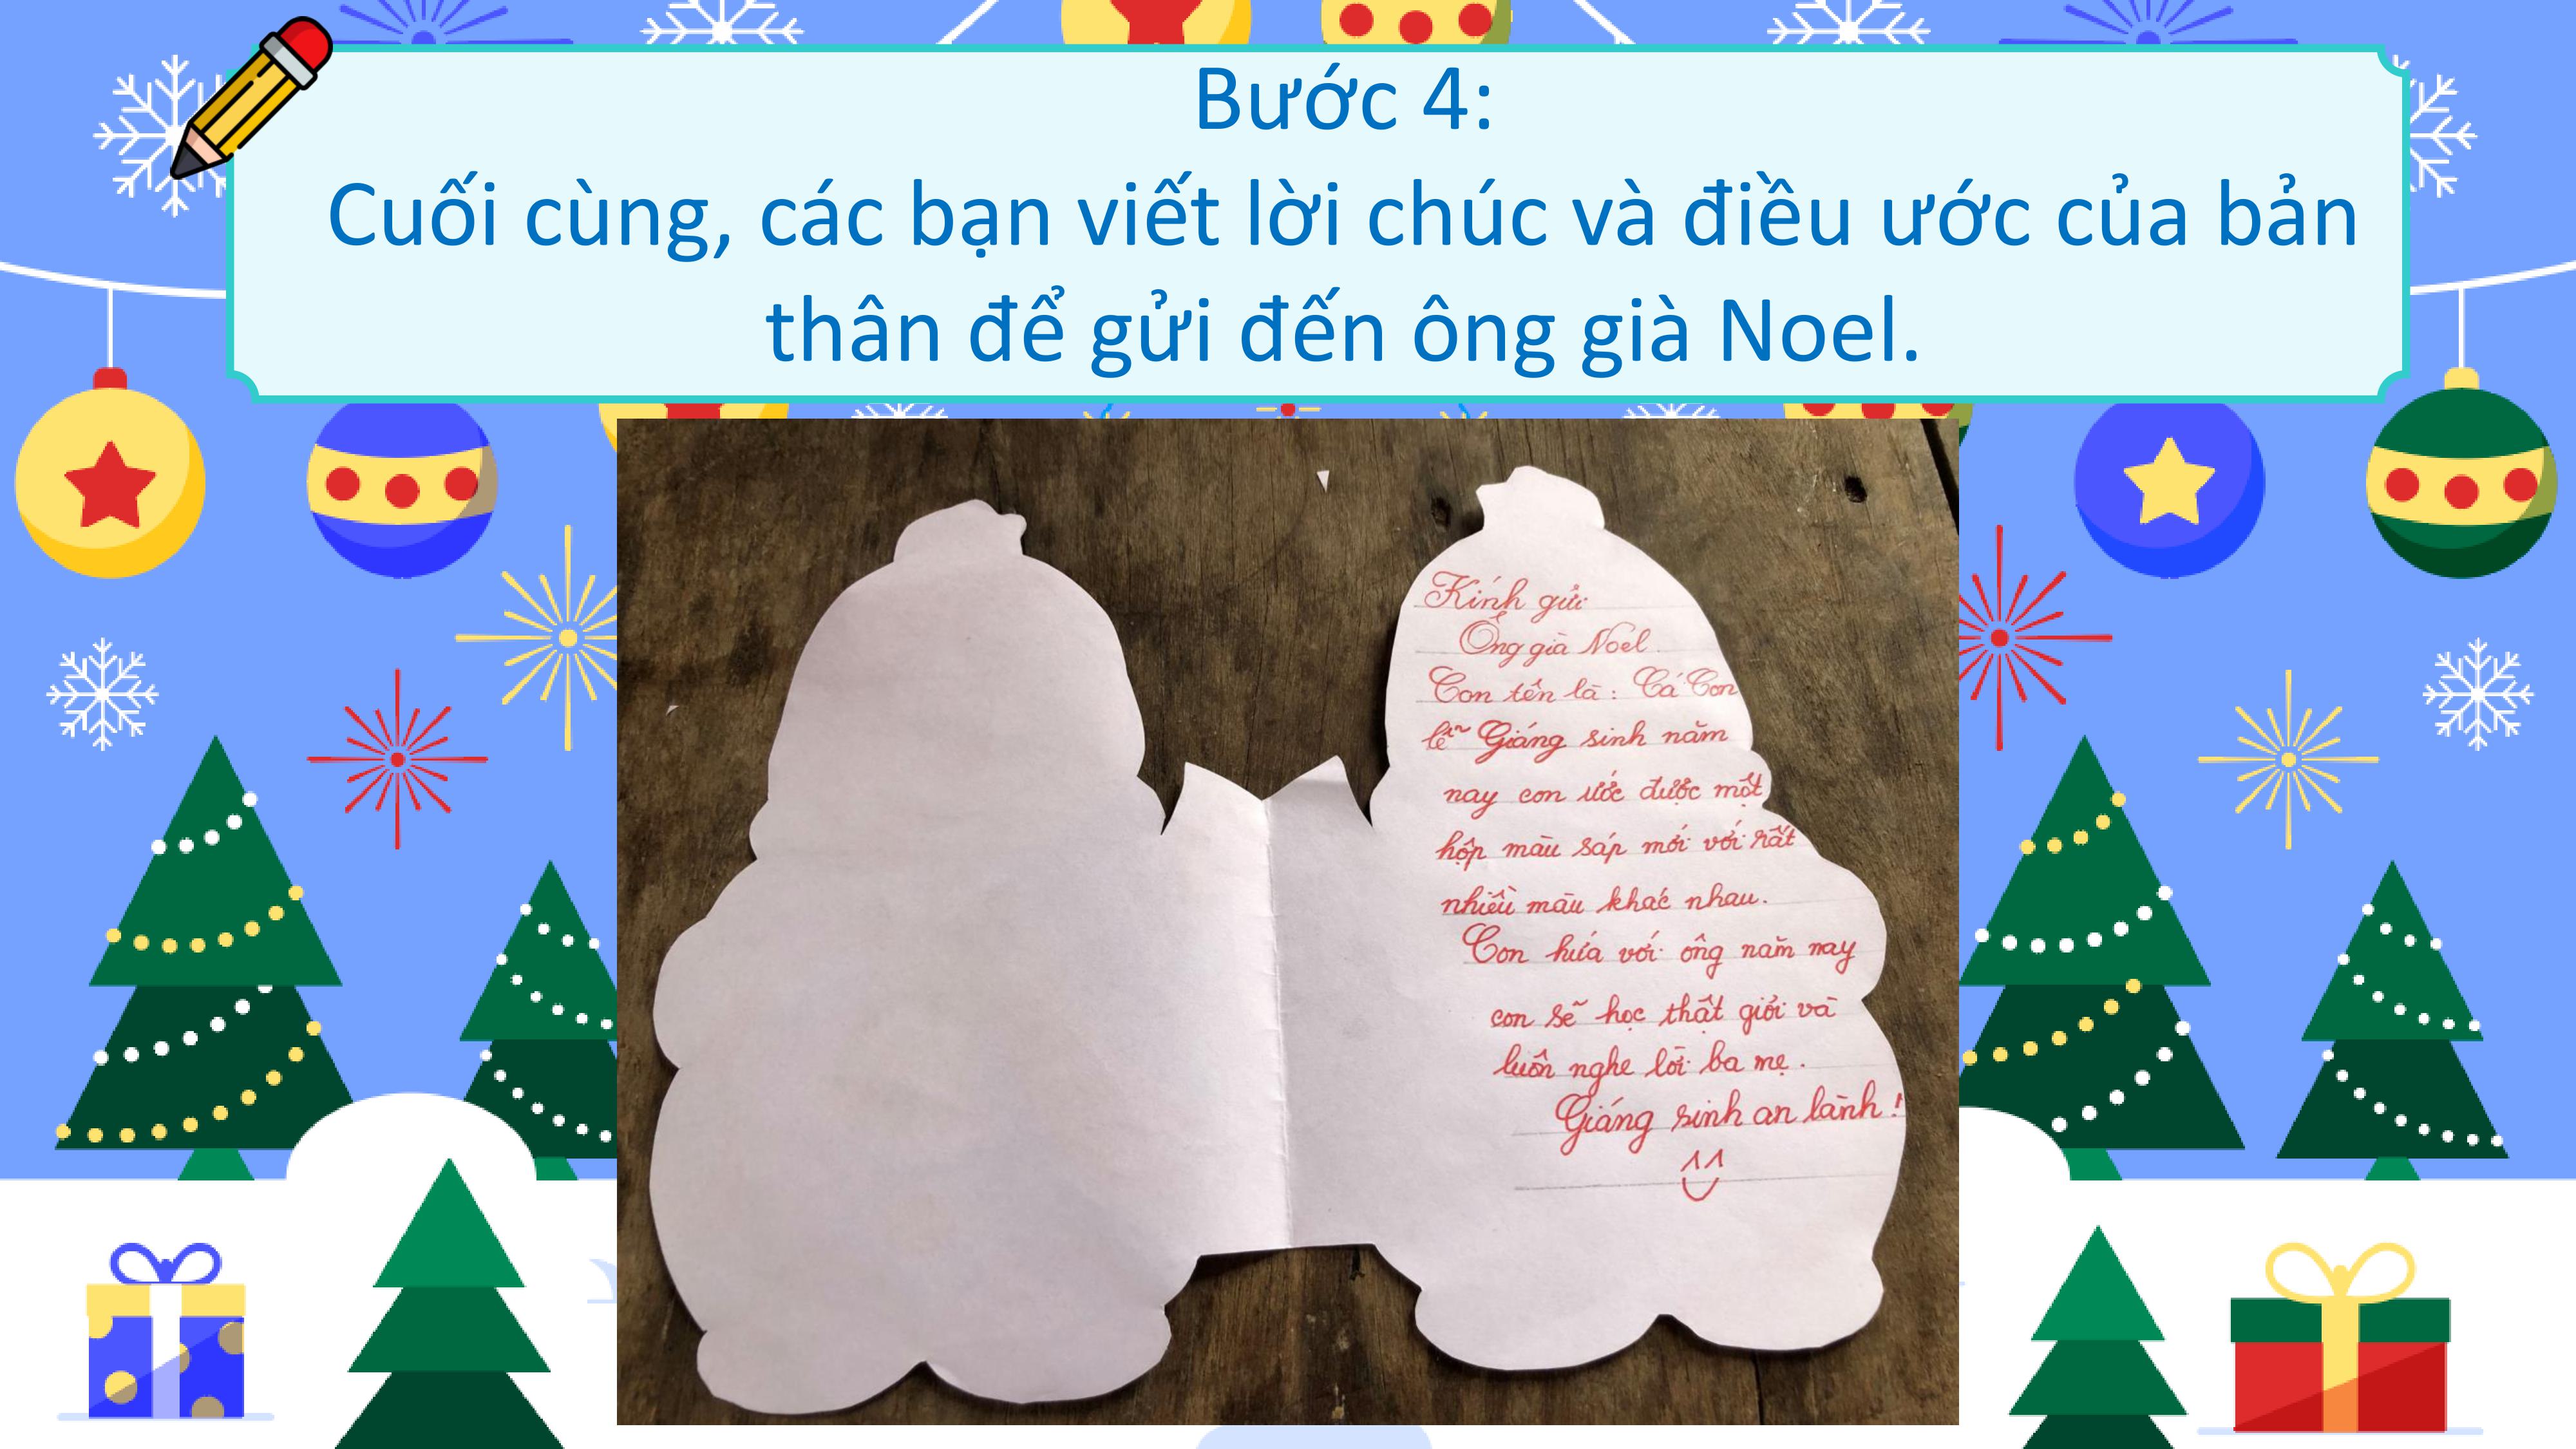 Bước 4:
Cuối cùng, các bạn viết lời chúc và điều ước của bản
thân để gửi đến ông già Noel.
Kính gửi
Ông già Noel.
Con tên là: Cá Con
lễ Giáng sinh năm
nay con ước được một
hộp màu sáp mới với rất
nhiều màu khác nhau.
Con hứa với ông năm nay
con sẽ học thật giỏi và
luôn nghe lời ba mẹ.
Giáng sinh an lành!